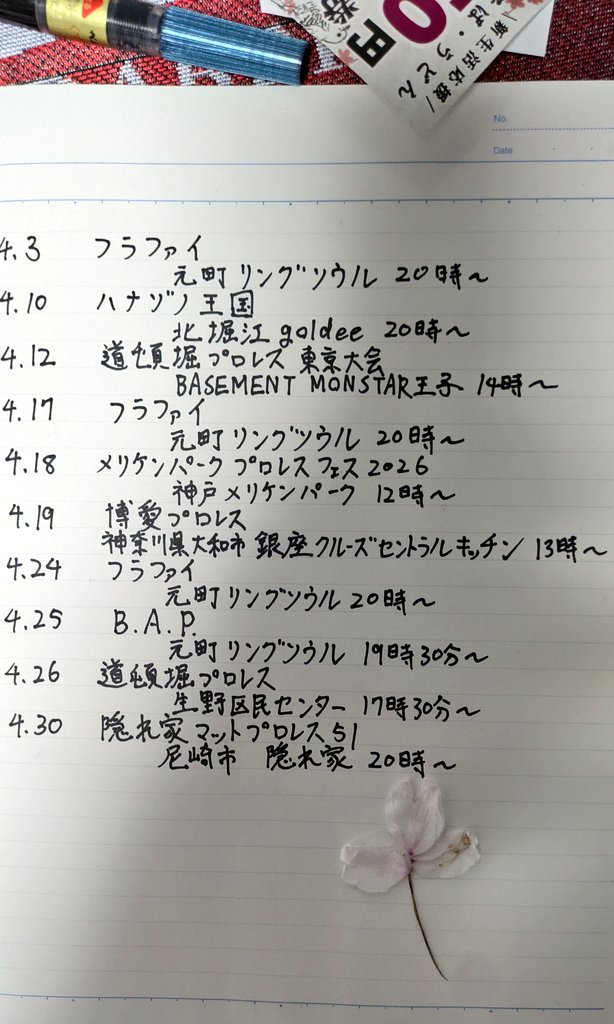 0円
券
\新生活応援/
ば・うどん
No.
Date
4.3 フラファイ
元町リングソウル 20時〜
4.10 ハナゾノ王国
北堀江 goldee 20時〜
4.12 道頓堀プロレス 東京大会
BASEMENT MONSTAR王子 14時〜
4.17 フラファイ
元町リングソウル 20時〜
4.18 メリケンパークプロレスフェス2026
神戸メリケンパーク 12時〜
4.19 博愛プロレス
神奈川県大和市 銀座クルーズセントラルキッチン 13時〜
4.24 フラファイ
元町リングソウル 20時〜
4.25 B.A.P.
元町リングソウル 19時30分〜
4.26 道頓堀プロレス
生野区民センター 17時30分〜
4.30 隠れ家マットプロレス51
尼崎市 隠れ家 20時〜